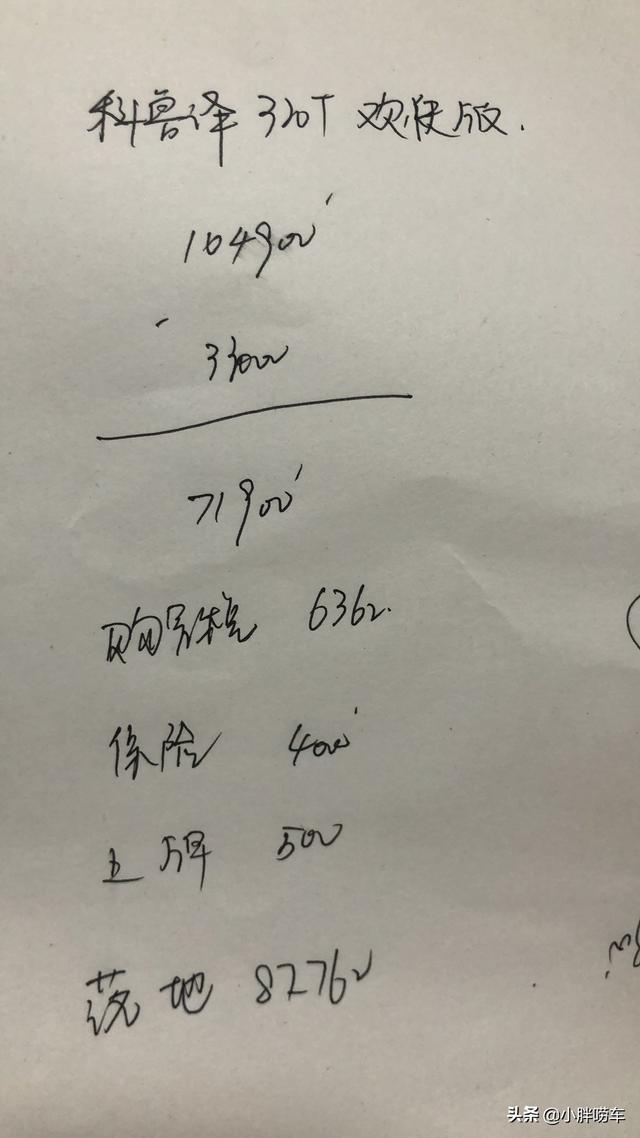 科鲁泽 320T 欢快版.
104900
- 33000
71900
购置税 6362.
保险 4000
上牌 500
落地 82762
头条 @小胖唠车